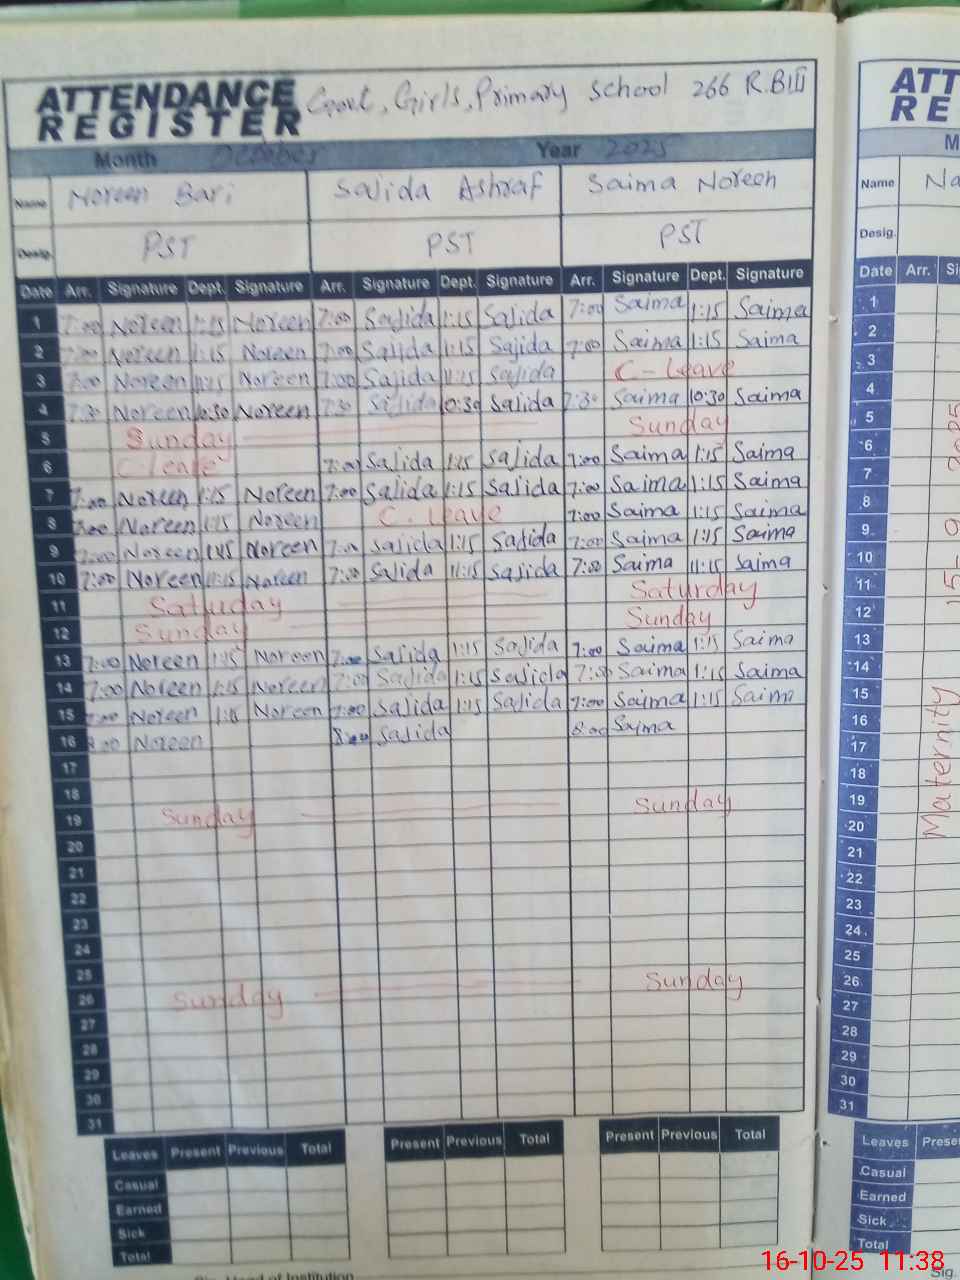 ATTENDANCE REGISTER Govt, Girls, Primary School 266 R.B III
Month October Year 2025
Name Noreen Bari Sajida Ashraf Saima Noreen
Desig. PST PST PST
Date Arr. Signature Dept. Signature Arr. Signature Dept. Signature Arr. Signature Dept. Signature
1 7:00 Noreen 1:15 Noreen 7:00 Sajida 1:15 Sajida 7:00 Saima 1:15 Saima
2 7:00 Noreen 1:15 Noreen 7:00 Sajida 1:15 Sajida 7:00 Saima 1:15 Saima
3 7:00 Noreen 1:15 Noreen 7:00 Sajida 1:15 Sajida C-Leave
4 7:30 Noreen 10:30 Noreen 7:30 Sajida 10:30 Sajida 7:30 Saima 10:30 Saima
5 Sunday Sunday
6 C.leave 7:00 Sajida 1:15 Sajida 7:00 Saima 1:15 Saima
7 7:00 Noreen 1:15 Noreen 7:00 Sajida 1:15 Sajida 7:00 Saima 1:15 Saima
8 7:00 Noreen 1:15 Noreen C. Leave 7:00 Saima 1:15 Saima
9 7:00 Noreen Noreen 7:00 Sajida 1:15 Sajida 7:00 Saima 1:15 Saima
10 7:00 Noreen 11:15 Noreen 7:00 Sajida 11:15 Sajida 7:00 Saima 11:15 Saima
11 Satuday Saturday
12 Sunday Sunday
13 7:00 Noreen 1:15 Noreen 7:00 Sajida 1:15 Sajida 7:00 Saima 1:15 Saima
14 7:00 Noreen 1:15 Noreen 7:00 Sajida 1:15 Sajida 7:00 Saima 1:15 Saima
15 7:00 Noreen 1:15 Noreen 7:00 Sajida 1:15 Sajida 7:00 Saima 1:15 Saim
16 8:00 Noreen 8:00 Sajida 8:00 Saima
17
18
19 Sunday Sunday
20
21
22
23
24
25
26 Sunday Sunday
27
28
29
30
31
Leaves Present Previous Total Present Previous Total Present Previous Total
Casual
Earned
Sick
Total
Sig. Head of Institution
ATT
RE
M
Name Na
Desig.
Date Arr. Si
1
2
3
4
5
6
7
8
9
10
11
12
13
14
15
16
17
18
19
20
21
22
23
24
25
26
27
28
29
30
31
Maternity
Leaves Prese
Casual
Earned
Sick
Total
Sig.
16-10-25 11:38